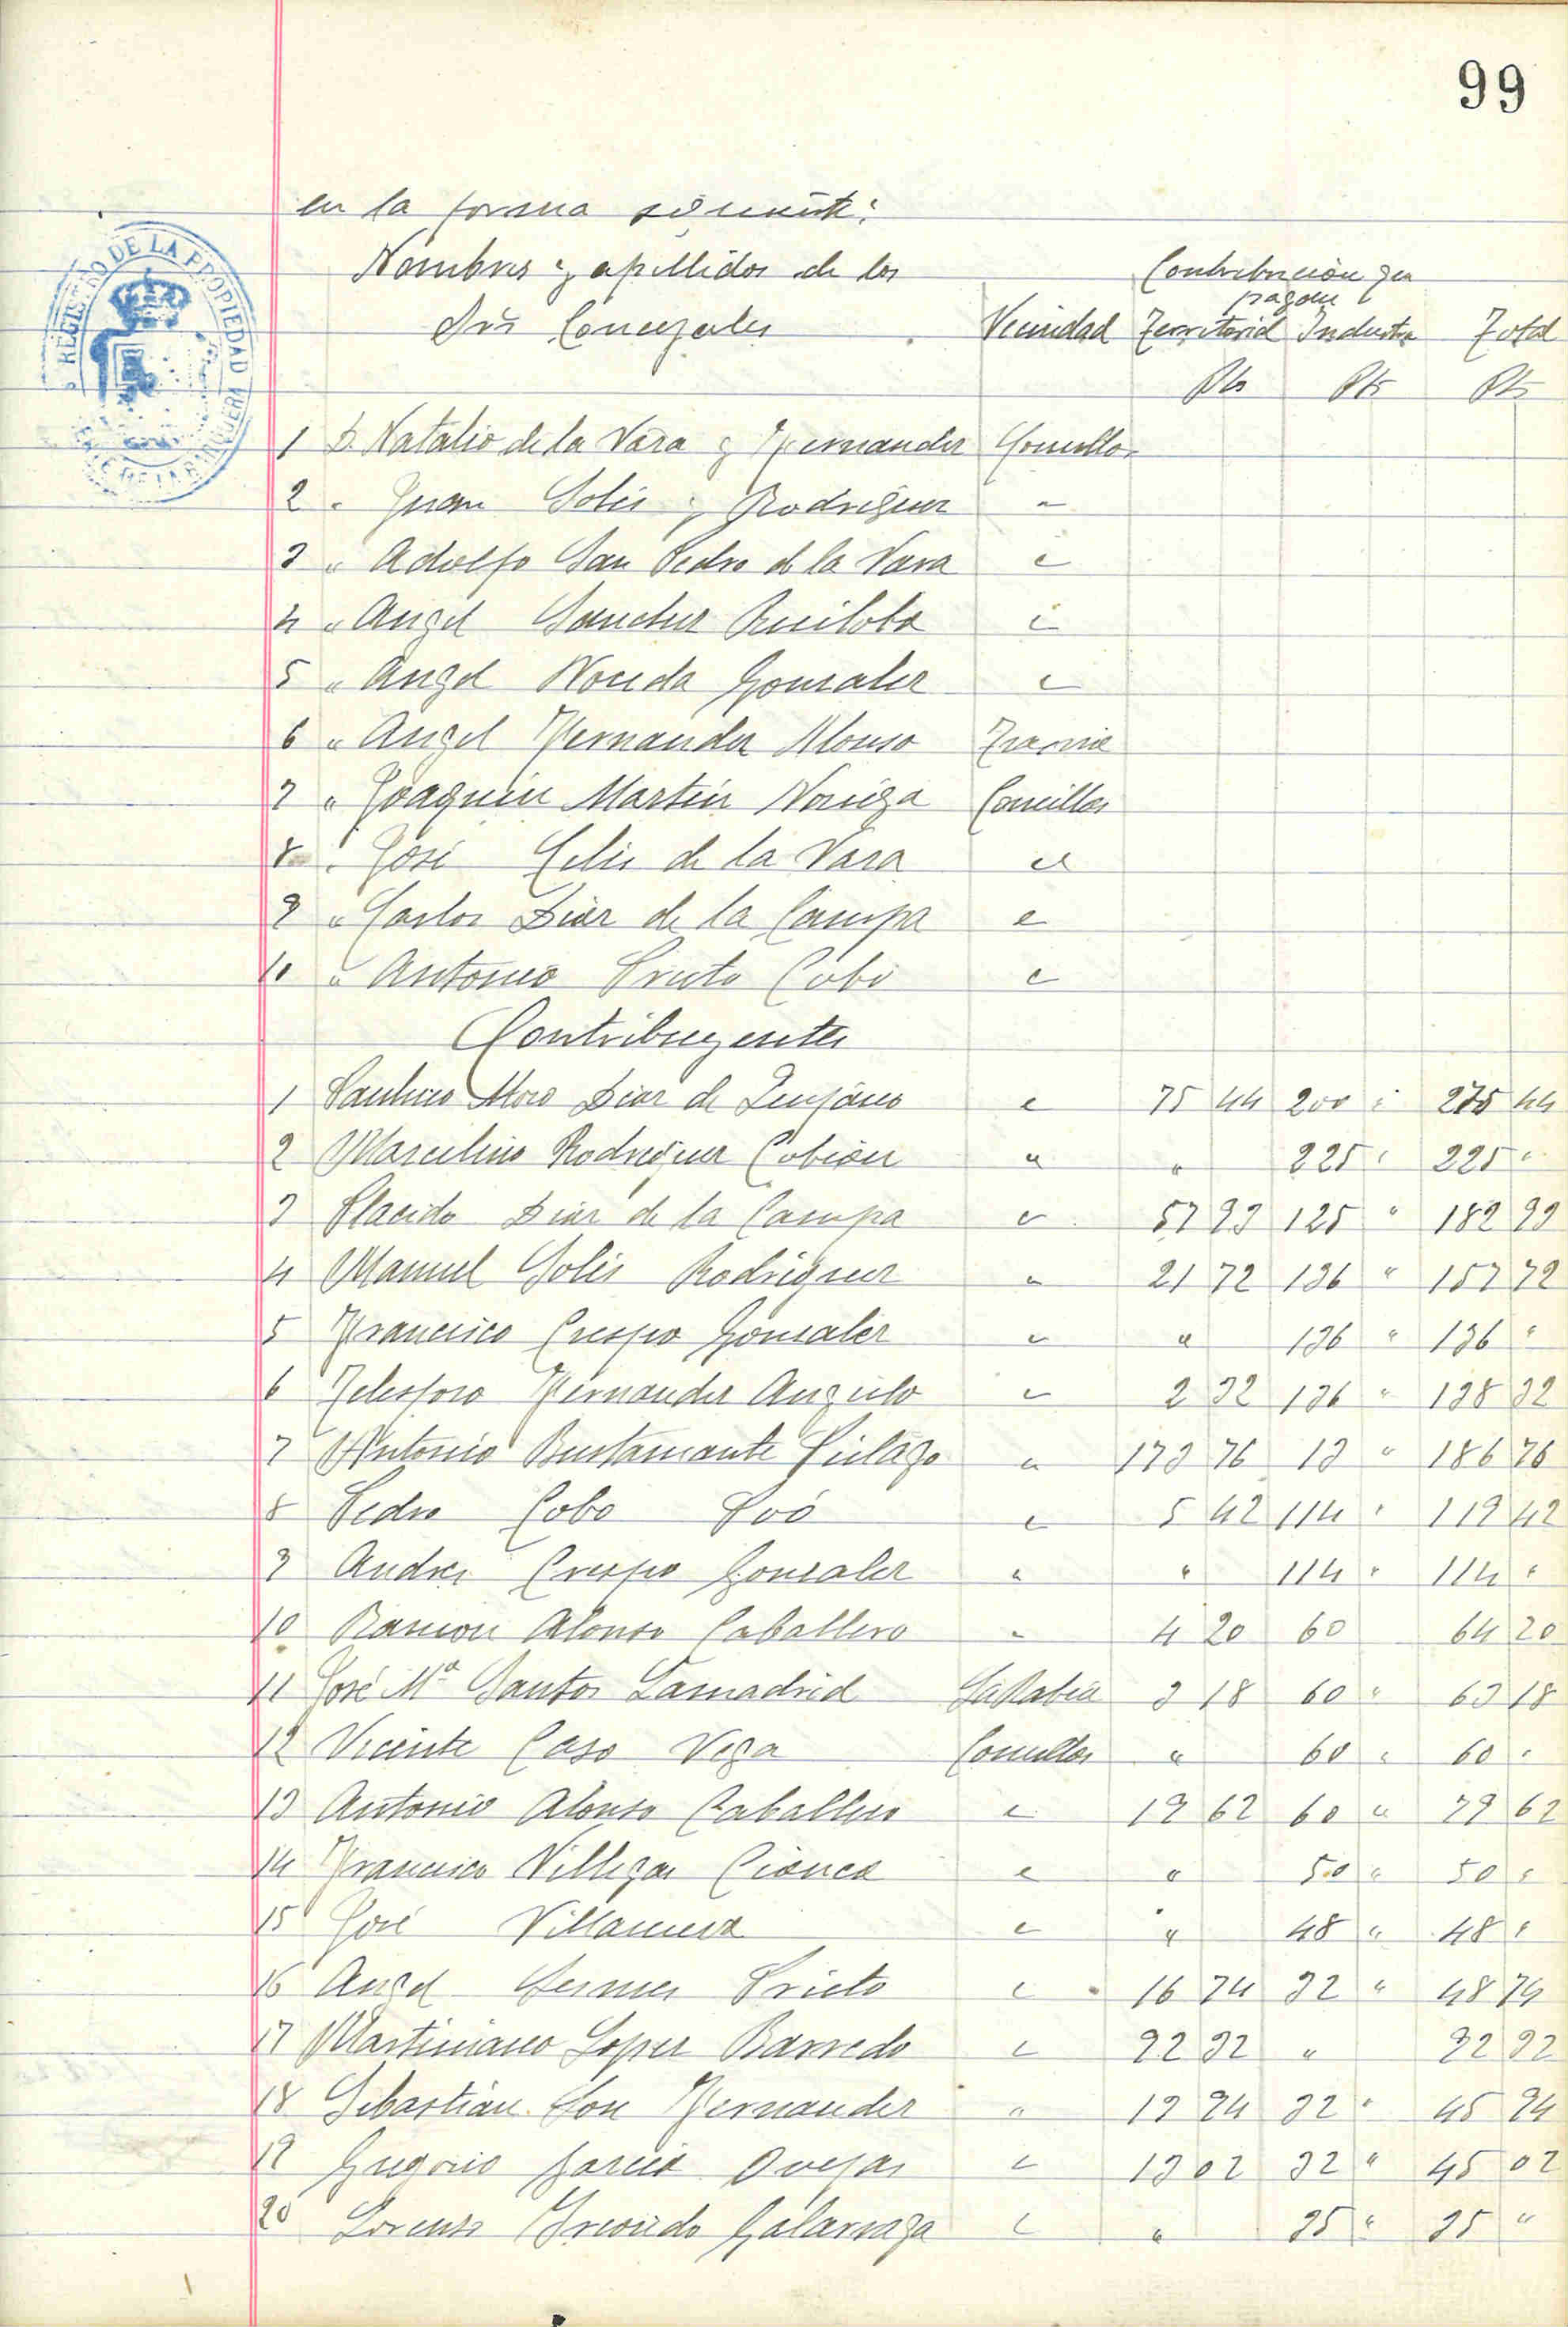 99
en la forma siguiente:
Nombres y apellidos de los Contribución que
pagan
Sres Concejales Vecindad Territorial Industr Total
Pts Pts Pts
1 D. Natalio de la Vara y Fernandez Comillas
2 " Juan Solis y Rodriguez "
3 " Adolfo San Pedro de la Vara "
4 " Angel Sanchez Ruiloba "
5 " Angel Noceda Gonzalez "
6 " Angel Fernandez Alonso
7 " Joaquin Martin Noriega Comillas
8 " José Celis de la Vara "
9 " Carlos Diaz de la Campa "
10 " Antonio Prieto Cobo "
Contribuyentes
1 Moro Diaz de " 75 44 200 " 275 44
2 Marcelino Rodriguez Cobian " " 225 " 225 "
3 Placido Diaz de la Campa " 57 93 125 " 182 93
4 Manuel Solis Rodriguez " 21 72 136 " 157 72
5 Francisco Crespo Gonzalez " " 136 " 136 "
6 Telesforo Fernandez Angulo " 2 32 136 " 138 32
7 Antonio Bustamante Piélago " 173 76 13 " 186 76
8 Pedro Cobo Poó " 5 42 114 " 119 42
9 Andres Crespo Gonzalez " " 114 " 114 "
10 Ramon Alonso Caballero " 4 20 60 64 20
11 José Mª Santos Lamadrid La Rabia 3 18 60 " 63 18
12 Vicente Caso Vega Comillas " 60 " 60 "
13 Antonio Alonso Caballero " 19 62 60 " 79 62
14 Francisco Villegas Cianca " " 50 " 50 "
15 José Villanueva " " 48 " 48 "
16 Angel Prieto " 16 74 32 " 48 74
17 Martiniano Lopez Barredo " "
18 Sebastián Fernandez " 13 94 32 " 45 94
19 Gregorio Garcia Ovejas " 13 02 32 " 45 02
20 Lorenzo Galarraga " " 35 " 35 "
REGISTRO DE LA PROPIEDAD